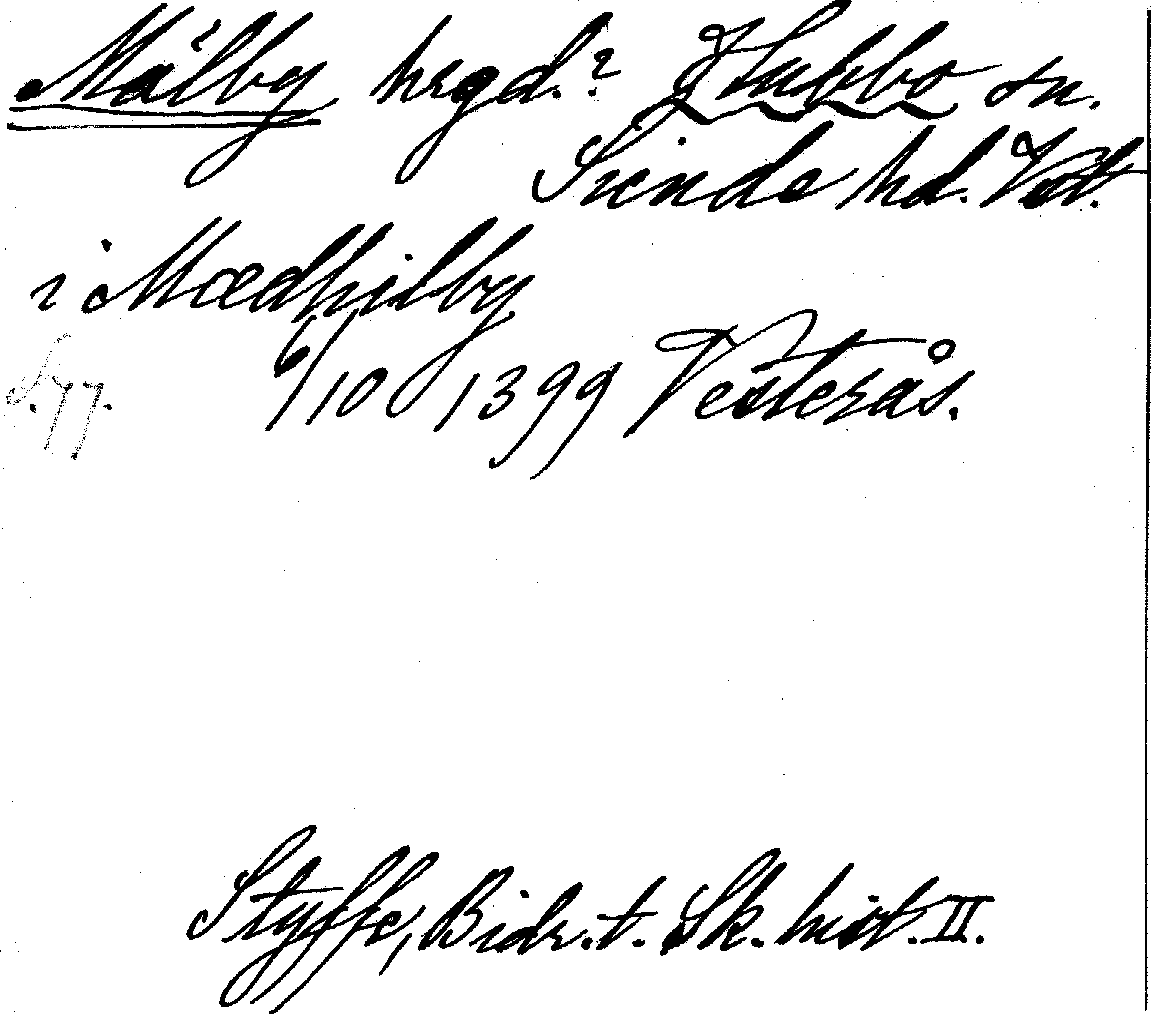 Målby hrgd.? Hubbo sn.
Siende hd. Vstl.
i Mædhilby
6/10 1399 Vesterås.
S. 77.
Styffe, Bidr. t. Sk. hist. II.